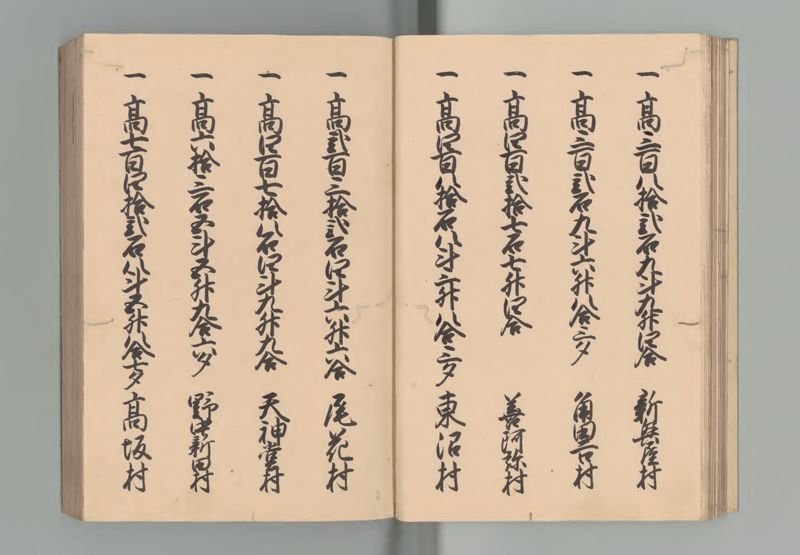 一 高三百八拾弐石九斗九升四合 新長屋村
一 高三百弐石九斗六升八合三夕 角田一村
一 高四百弐拾七石七升四合 善阿弥村
一 高四百八拾石八斗三升八合三夕 東沼村
一 高弐百三拾弐石四斗六升六合 尾花村
一 高四百七拾八石四斗九升九合 天神堂村
一 高六拾三石五斗五升九合六夕 野中新田村
一 高七百四拾弐石八斗五升八合七夕 高坂村